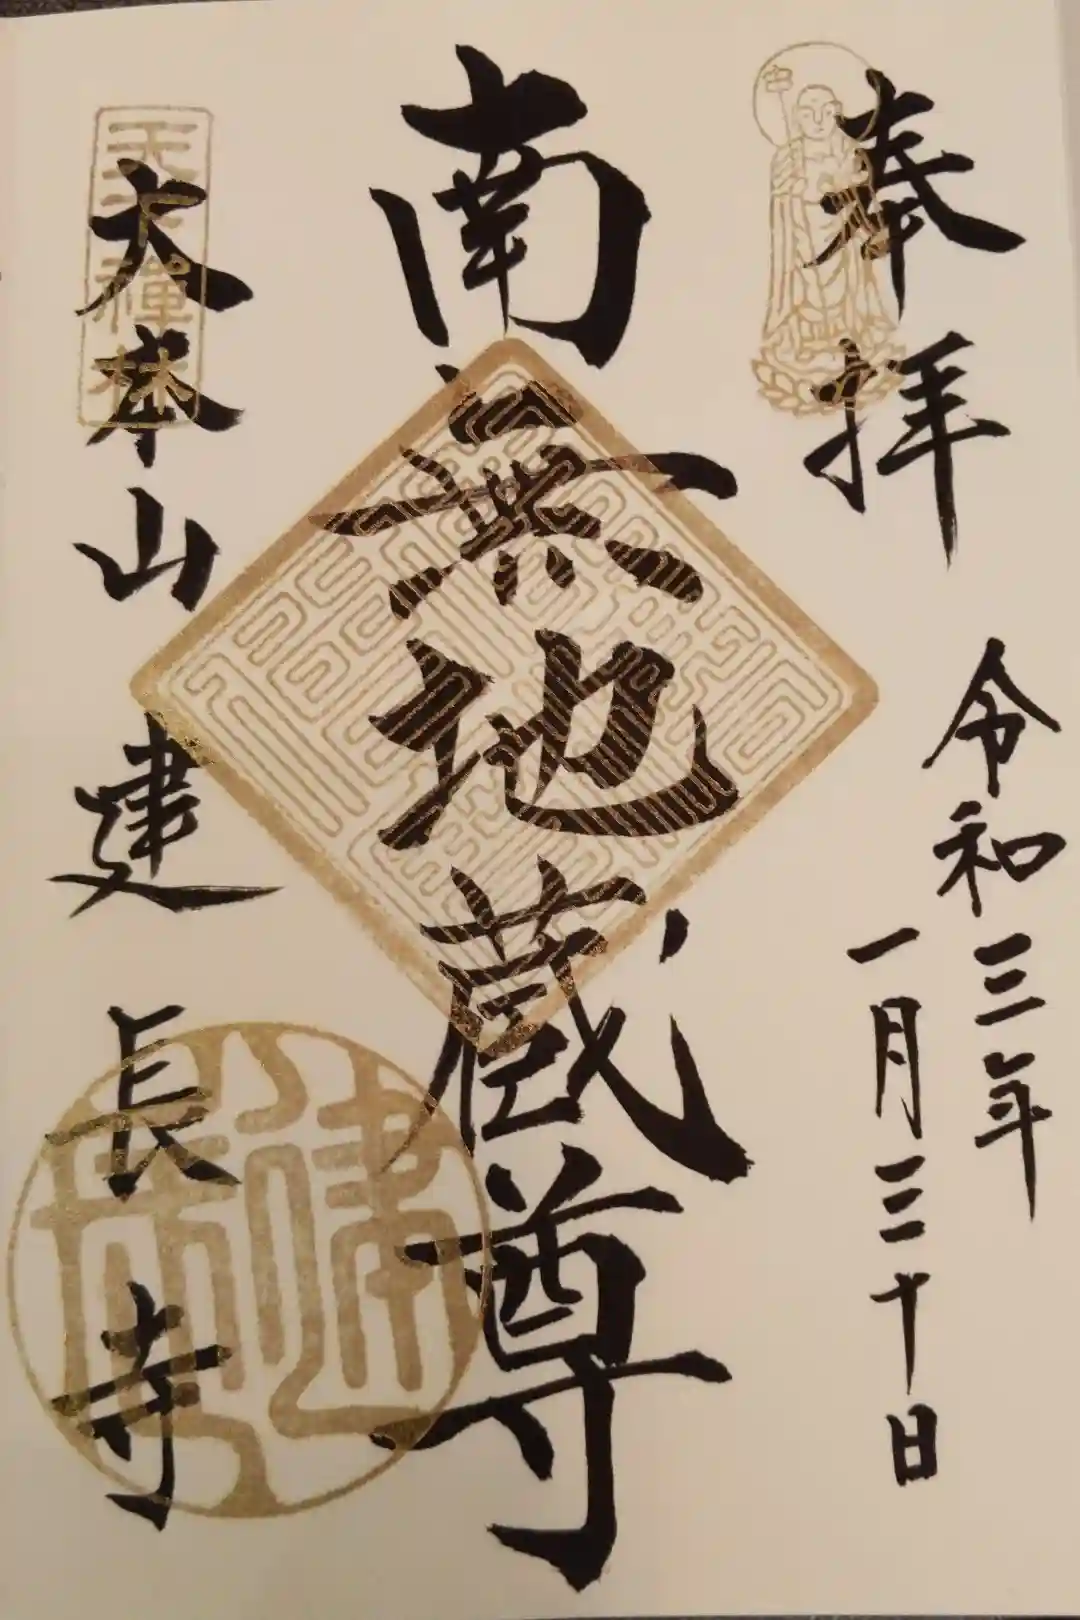 奉拝
令和三年
一月三十日
南無地蔵尊
大本山建長寺
天下禅林